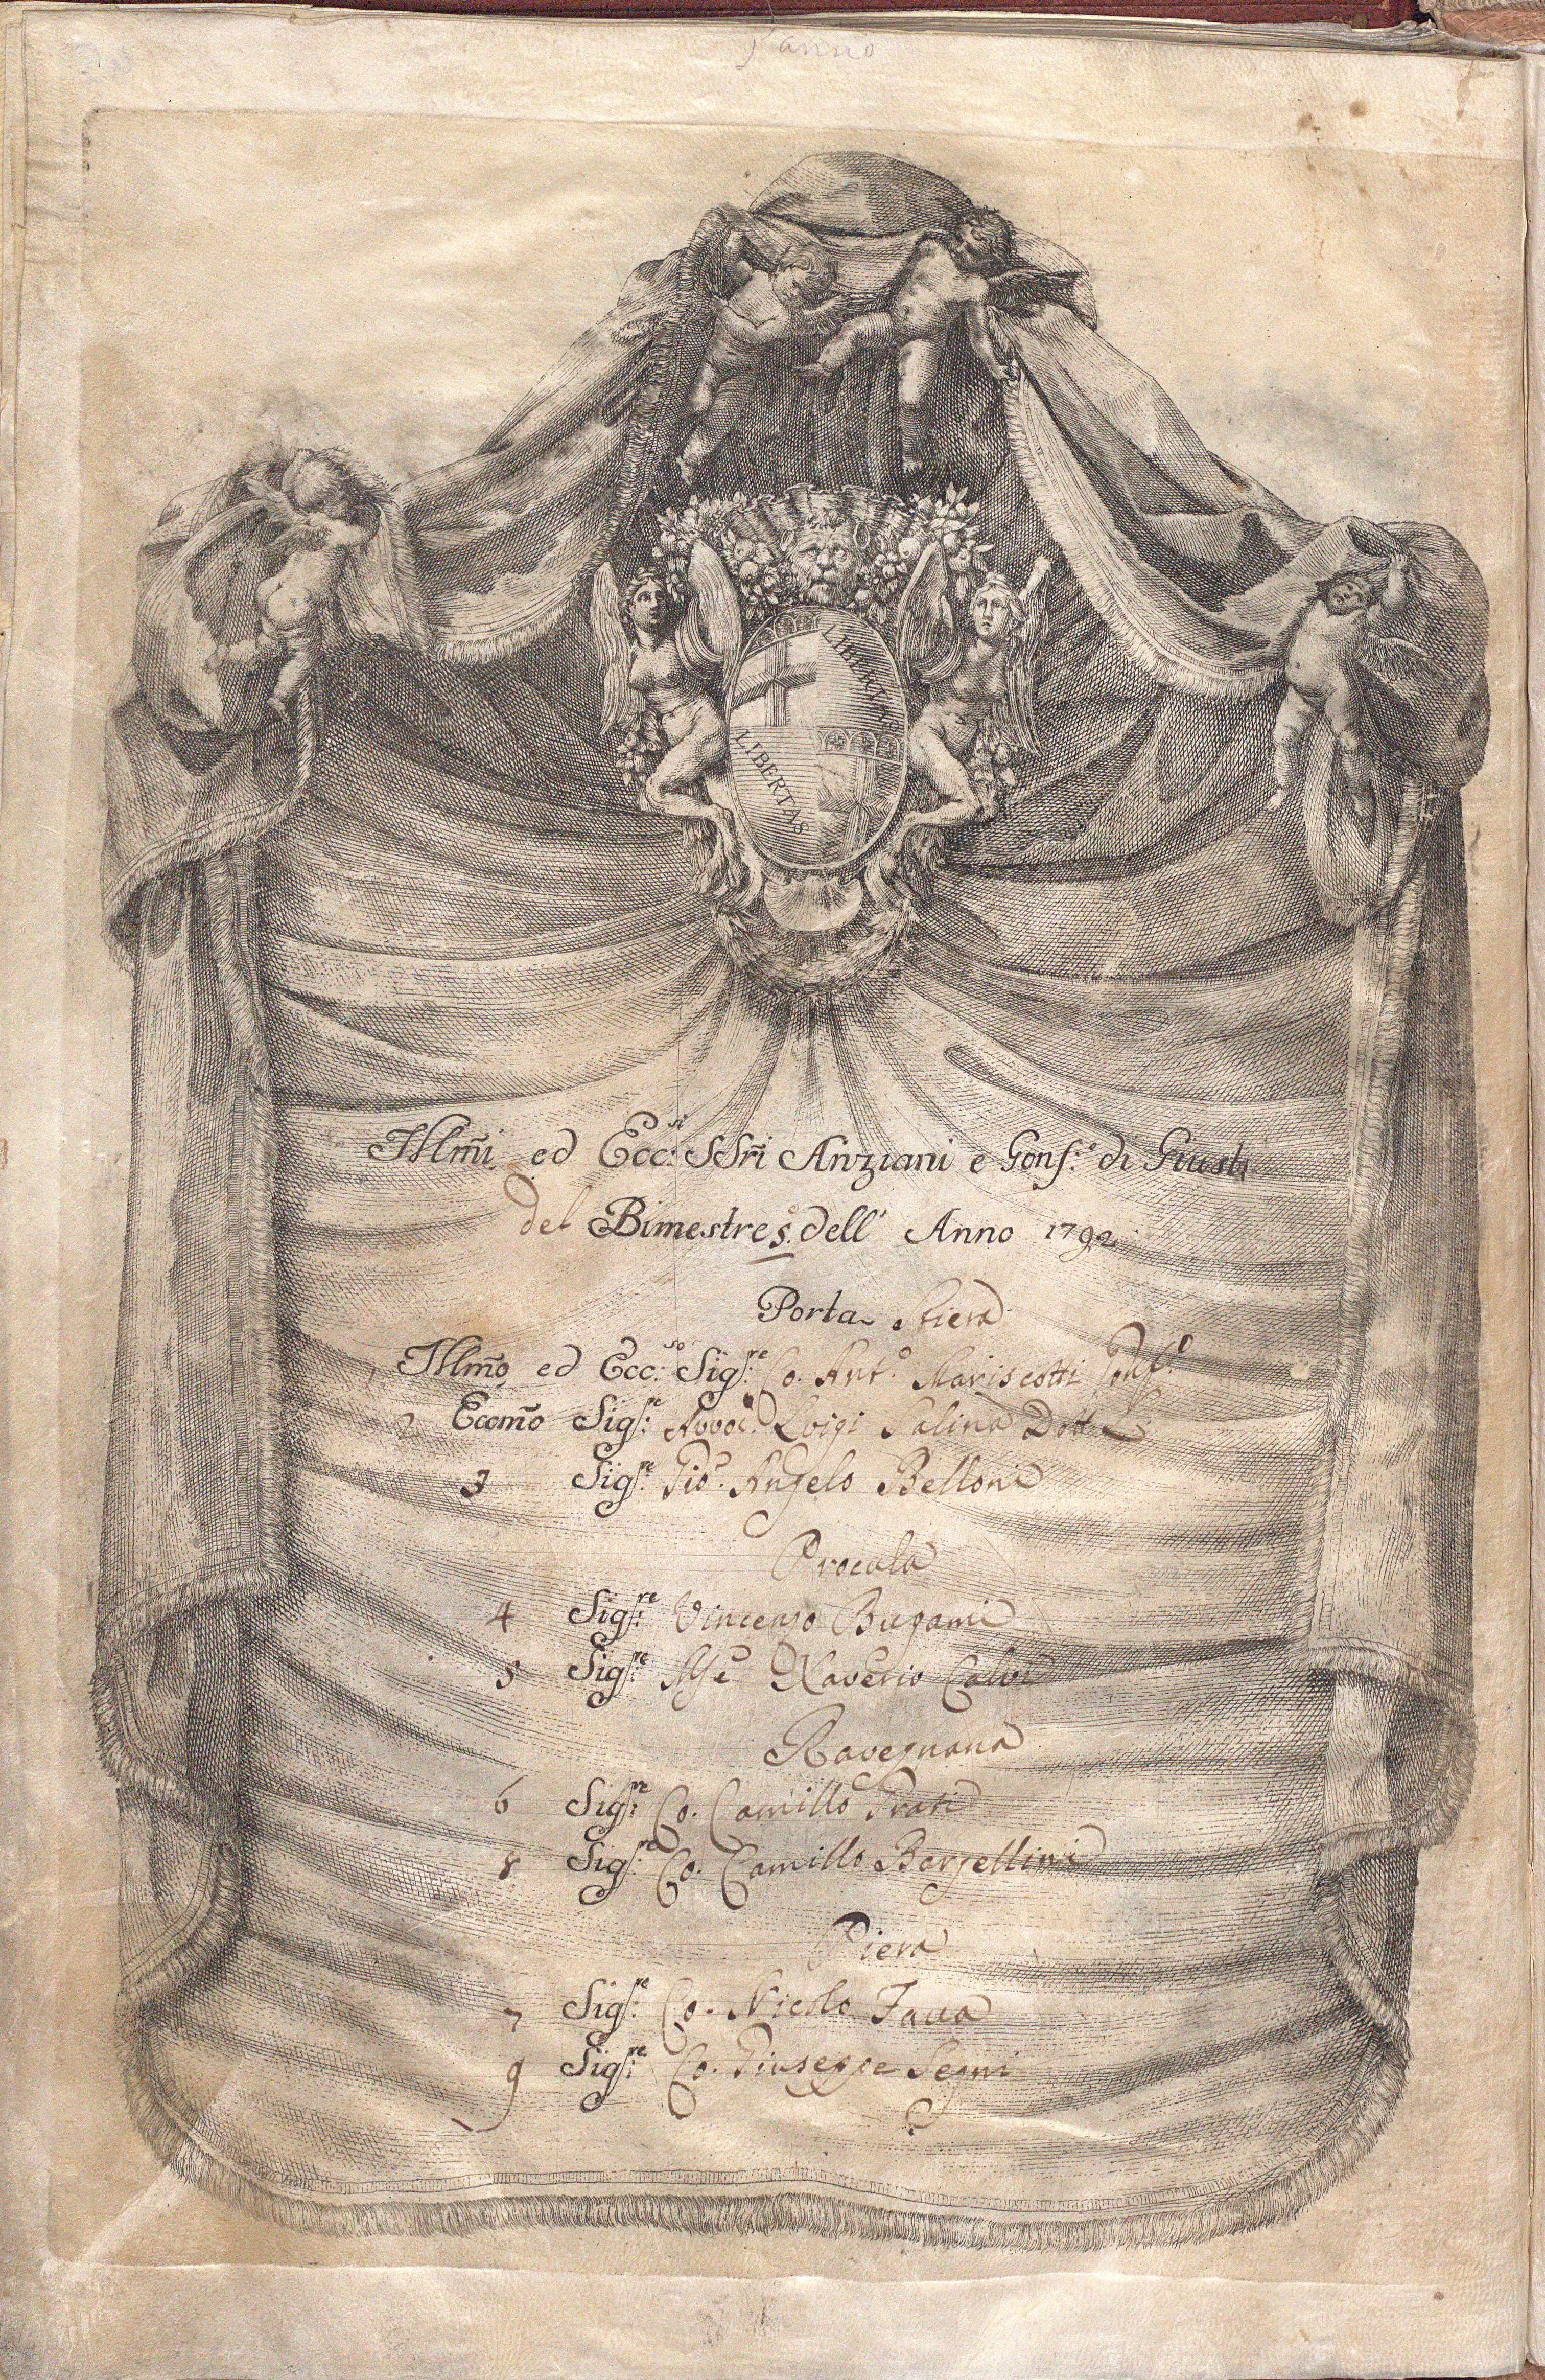 l'anno
LIBERTAS
LIBERTAS
Illm̃i ed Ecc:si SSri Anziani e Gonf:e di Giusti
del Bimestre 5.o dell' Anno 1792
Porta Stiera
1 Illm̃o ed Ecc:so Sig:re Co. Ant.o Mariscotti Gonf.e
2 Eccm̃o Sig:re Avvoc. Luigi Salina Dott.
3 Sig:re Gio. Angelo Belloni
Procula
4 Sig:re Vincenzo Bugami
5 Sig:re Mse Xaverio Calvi
Ravegnana
6 Sig:re Co. Camillo Grati
8 Sig:re Co. Camillo Bargellini
Piera
7 Sig:re Co. Nicolo Fava
9 Sig:re Co. Giuseppe Segni